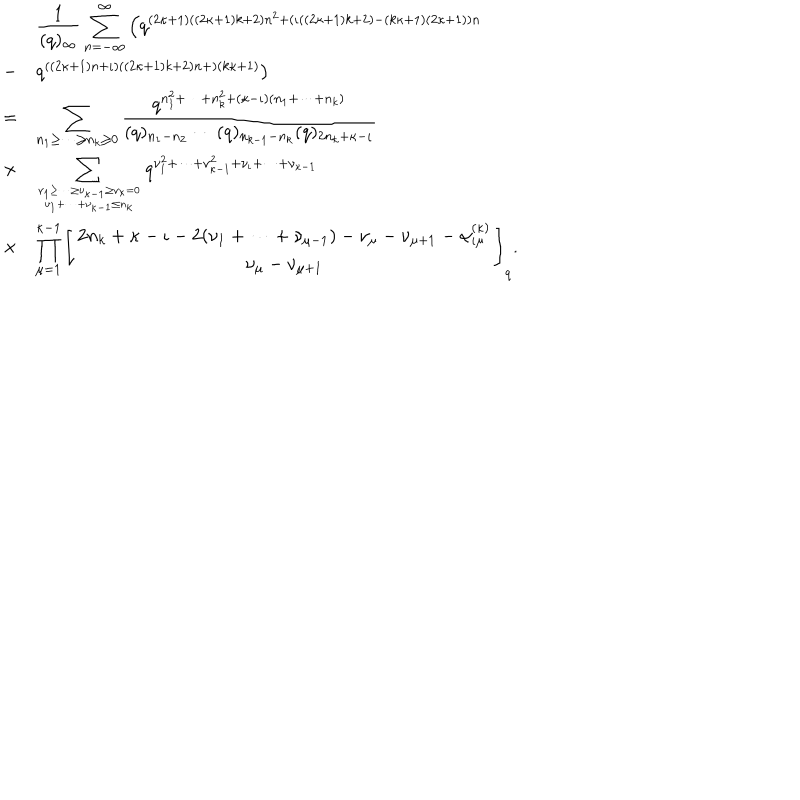 \frac{1}{(q)_\infty} \sum_{n=-\infty}^{\infty} \left( q^{(2κ+1)((2κ+1)k+2)n^2+(ι((2κ+1)k+2)-(kκ+1)(2κ+1))n}
- q^{((2κ+1)n+ι)((2κ+1)k+2)n+)(kκ+1)} \right)
= \sum_{n_1≥\cdots≥n_k≥0} \frac{q^{n_1^2+\cdots+n_k^2+(κ-ι)(n_1+\cdots+n_k)}}{(q)_{n_1-n_2}\cdots(q)_{n_{k-1}-n_k}(q)_{2n_k+κ-ι}}
× \sum_{ν_1≥\cdots≥ν_{κ-1}≥ν_κ=0 \atop ν_1+\cdots+ν_{κ-1}≤n_k} q^{ν_1^2+\cdots+ν_{κ-1}^2+ν_ι+\cdots+ν_{κ-1}}
× \prod_{μ=1}^{κ-1} \left[ {2n_k+κ-ι-2(ν_1+\cdots+ν_{μ-1})-ν_μ-ν_{μ+1}-α_{ιμ}^{(κ)} \atop ν_μ-ν_{μ+1}} \right]_q.